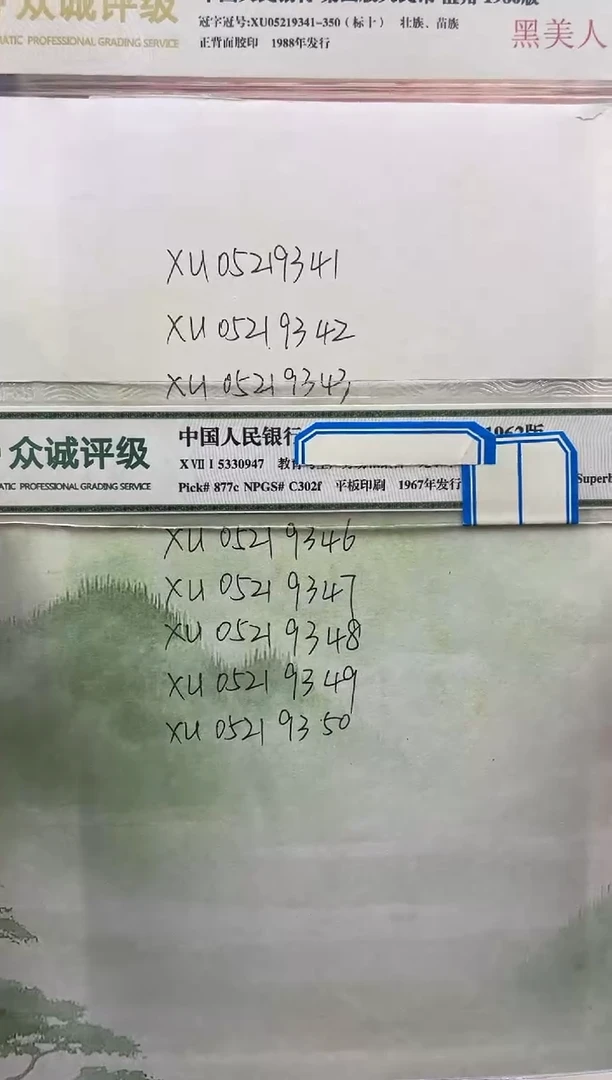 众诚评级
ATIC PROFESSIONAL GRADING SERVICE
冠字冠号:XU05219341-350（标十） 壮族、苗族
正背面胶印 1988年发行
黑美人
XU 05219341
XU 05219342
XU 05219343
众诚评级
ATIC PROFESSIONAL GRADING SERVICE
中国人民银行
1962版
X VII I 5330947
Pick# 877c NPGS# C302f 平板印刷 1967年发行
Superb
XU 05219346
XU 05219347
XU 05219348
XU 05219349
XU 05219350